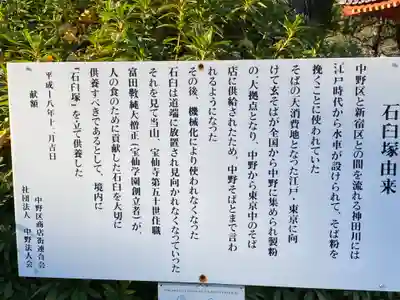 石臼塚由来
中野区と新宿区との間を流れる神田川には
江戸時代から水車が設けられて、そば粉を
挽くことに使われていた
そばの一大消費地となった江戸・東京に向
けて玄そばが全国から中野に集められ製粉
の一大拠点となり、中野から東京中のそば
店に供給されたため、中野そばとまで言わ
れるようになった
その後、機械化により使われなくなった
石臼は道端に放置され見向かれなくなっていた
それを見て当山、宝仙寺第五十世住職
富田斅純大僧正(宝仙学園創立者)が、
人の食のために貢献した石臼を大切に
供養すべきであるとして、境内に
「石臼塚」を立て供養した
平成十八年一月吉日
献額
中野区商店街連合会
社団法人 中野法人会